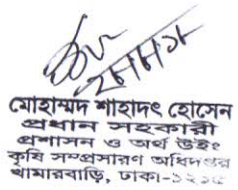 মোহাম্মদ শাহাদৎ হোসেন
প্রধান সহকারী
প্রশাসন ও অর্থ উইং
কৃষি সম্প্রসারণ অধিদপ্তর
খামারবাড়ি, ঢাকা-১২১৫